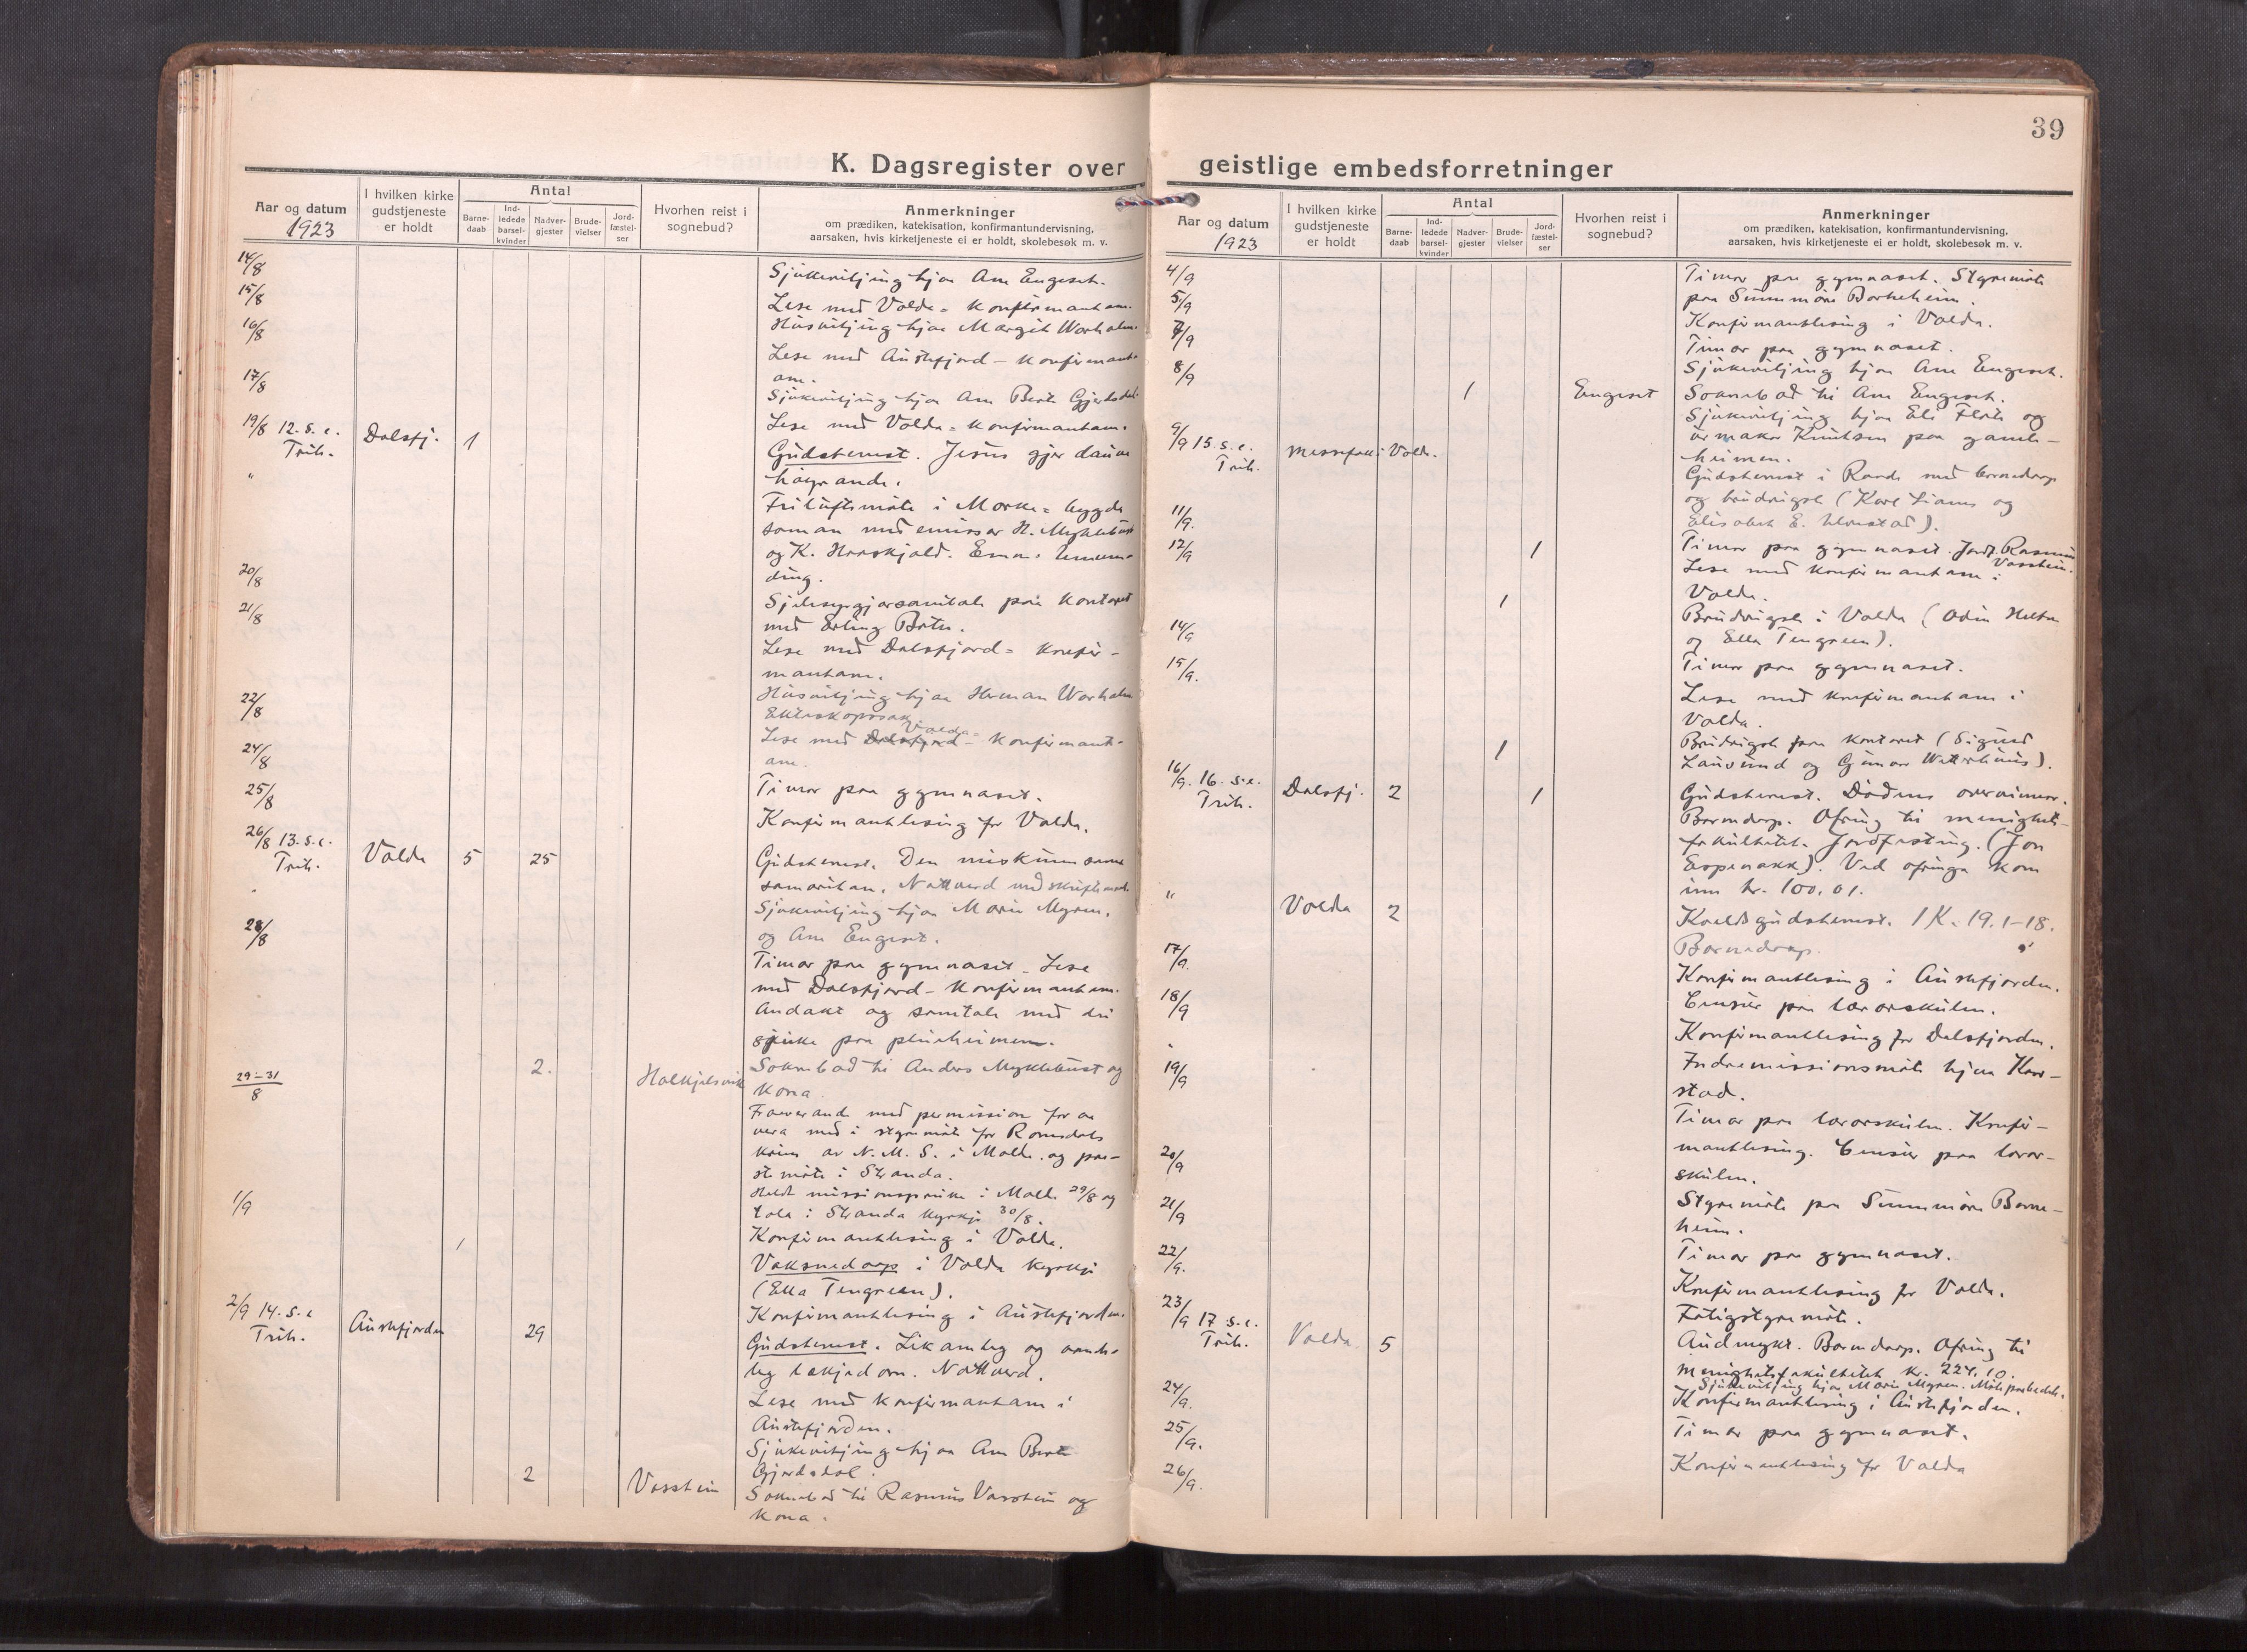 K. Dagsregister over
Aar og datum
1923
I hvilken kirke
gudstjeneste
er holdt
Antal
Barne-
daab
Ind-
ledede
barsel-
kvinder
Nadver-
gjester
Brude-
vielser
Jord-
fæstel-
ser
Hvorhen reist i
sognebud?
Anmerkninger
om prædiken, katekisation, konfirmantundervisning,
aarsaken, hvis kirketjeneste ei er holdt, skolebesøk m. v.
14/8 Sjukevitjing hjaa Ane Engeset.
15/8 Lese med Volda-konfirmantane.
Husvitjing hjaa Margit Warholm.
16/8 Lese med Austefjord-konfirmant-
ane.
17/8 Sjukevitjing hjaa Ane Berte Gjerdsdal.
Lese med Volda-konfirmantane.
19/8 12. s. e. Dalsfj. 1 Gudstenest. Jesus gjer dauve
Trih.
høyrande.
" Friluftsmøte i Morke-bygda
saman med emissær H. Myklebust
og K. Haaskjold. Emne:
ding.
20/8 Sjelesyrgjarsamtale paa kontoret
med Erling Botn.
21/8 Lese med Dalsfjord-konfir-
mantane.
Husvitjing hjaa Herman Warholm
Ekteskapssak
22/8 Lese med Dalsfjord Volda-konfirmant-
ane.
24/8 Timar paa gymnaset.
25/8 Konfirmantlesing for Volda.
26/8 13. s. e. Volda 5 25 Gudstenest. Den miskunnsame
Trih.
samaritan. Nattverd med skriftemaal
" Sjukevitjing hjaa Marie Myren.
og Ane Engeset.
28/8 Timar paa gymnaset. Lese
med Dalsfjord-konfirmantane.
Andakt og samtale med dei
sjuke paa pleieheimen.
2. Halkjelsvik Soknebod til Anders Myklebust og
kona.
29-31/8 Fraverande med permission for aa
vera med i styremøte for Romsdals
krins av N. M. S. i Molde og pre-
stemøte i Stranda.
Heldt missionspreike i Molde 29/8 og
tala i Stranda kyrkje 30/8.
1/9 Konfirmantlesing i Volda.
1 Vaksnedaap i Volda kyrkje
(Ella Tengreen).
Konfirmantlesing i Austefjorden.
2/9 14. s. e. Austefjorden 29 Gudstenest. Likamleg og aande-
Trih.
leg lækjedom. Nattverd.
Lese med konfirmantane i
Austefjorden.
Sjukevitjing hjaa Ane Berte
Gjerdsdal.
2 Vasstein Soknebod til Rasmus Vasstein og
kona.
39
geistlige embedsforretninger
Aar og datum
1923
I hvilken kirke
gudstjeneste
er holdt
Antal
Barne-
daab
Ind-
ledede
barsel-
kvinder
Nadver-
gjester
Brude-
vielser
Jord-
fæstel-
ser
Hvorhen reist i
sognebud?
Anmerkninger
om prædiken, katekisation, konfirmantundervisning,
aarsaken, hvis kirketjeneste ei er holdt, skolebesøk m. v.
4/9 Timar paa gymnaset. Styremøte
paa Sunnmøre Borneheim.
5/9 Konfirmantlesing i Volda.
7/9 Timar paa gymnaset.
8/9 Sjukevitjing hjaa Ane Engeset.
1 Engeset Soknebod til Ane Engeset.
Sjukevitjing hjaa Eli Flote og
urmakar Knutsen paa gamle-
heimen.
9/9 15. s. e. Messefall i Volda.
Trih.
Gudstenest i Rovde med barnedaap
og brudvigsle (Karl Liaves og
Elisabet E.
11/9. Timar paa gymnaset. Jordf. Rasmus
Vasstein.
12/9 1 Lese med konfirmantane i
Volda.
1 Brudvigsle i Volda (Odin Heltne
og Ella Tengreen).
14/9 Timar paa gymnaset.
15/9. Lese med konfirmantane i
Volda.
1 Brudvigsle paa kontoret (Sigurd
Lausund og Gunvor
16/9. 16. s. e. Dalsfj. 2 1 Gudstenest. Dødens overvinnar.
Trih.
Barnedaap. Ofring til menighets-
fakultetet. Jordfesting. (Jon
Espenakk). Ved ofringa kom
inn kr. 100.01.
" Volda 2 Kveldsgudstenest. 1 K. 19.1-18.
Barnedaap.
17/9. Konfirmantlesing i Austefjorden.
18/9 Censur paa lærarskulen.
Konfirmantlesing for Dalsfjorden.
" Indremissionsmøte hjaa
stad.
19/9 Timar paa lærarskulen. Konfir-
mantlesing. Censur paa lærar-
skulen.
20/9 Styremøte paa Sunnmøre Borne-
heim.
21/9 Timar paa gymnaset.
22/9. Konfirmantlesing for Volda.
Fatigstyremøte.
23/9 17 s. e. Volda 5 Audmykt. Barnedaap. Ofring til
Trih.
menighetsfakultetet kr. 224.10.
Sjukevitjing hjaa Marie Myren. Møte paa bedeh.
24/9. Konfirmantlesing i Austefjorden.
25/9. Timar paa gymnaset.
26/9. Konfirmantlesing for Volda